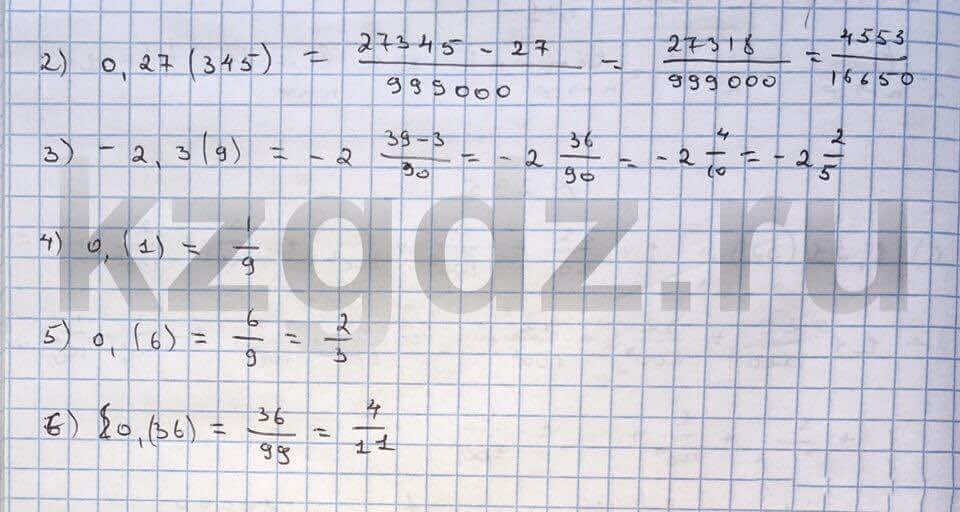 2) 0,27(345) = 27345 - 27 / 999000 = 27318 / 999000 = 4553 / 16650
3) -2,3(9) = -2 39-3 / 90 = -2 36 / 90 = -2 4 / 10 = -2 2 / 5
4) 0,(1) = 1 / 9
5) 0,(6) = 6 / 9 = 2 / 3
6) 0,(36) = 36 / 99 = 4 / 11
kzgdz.ru